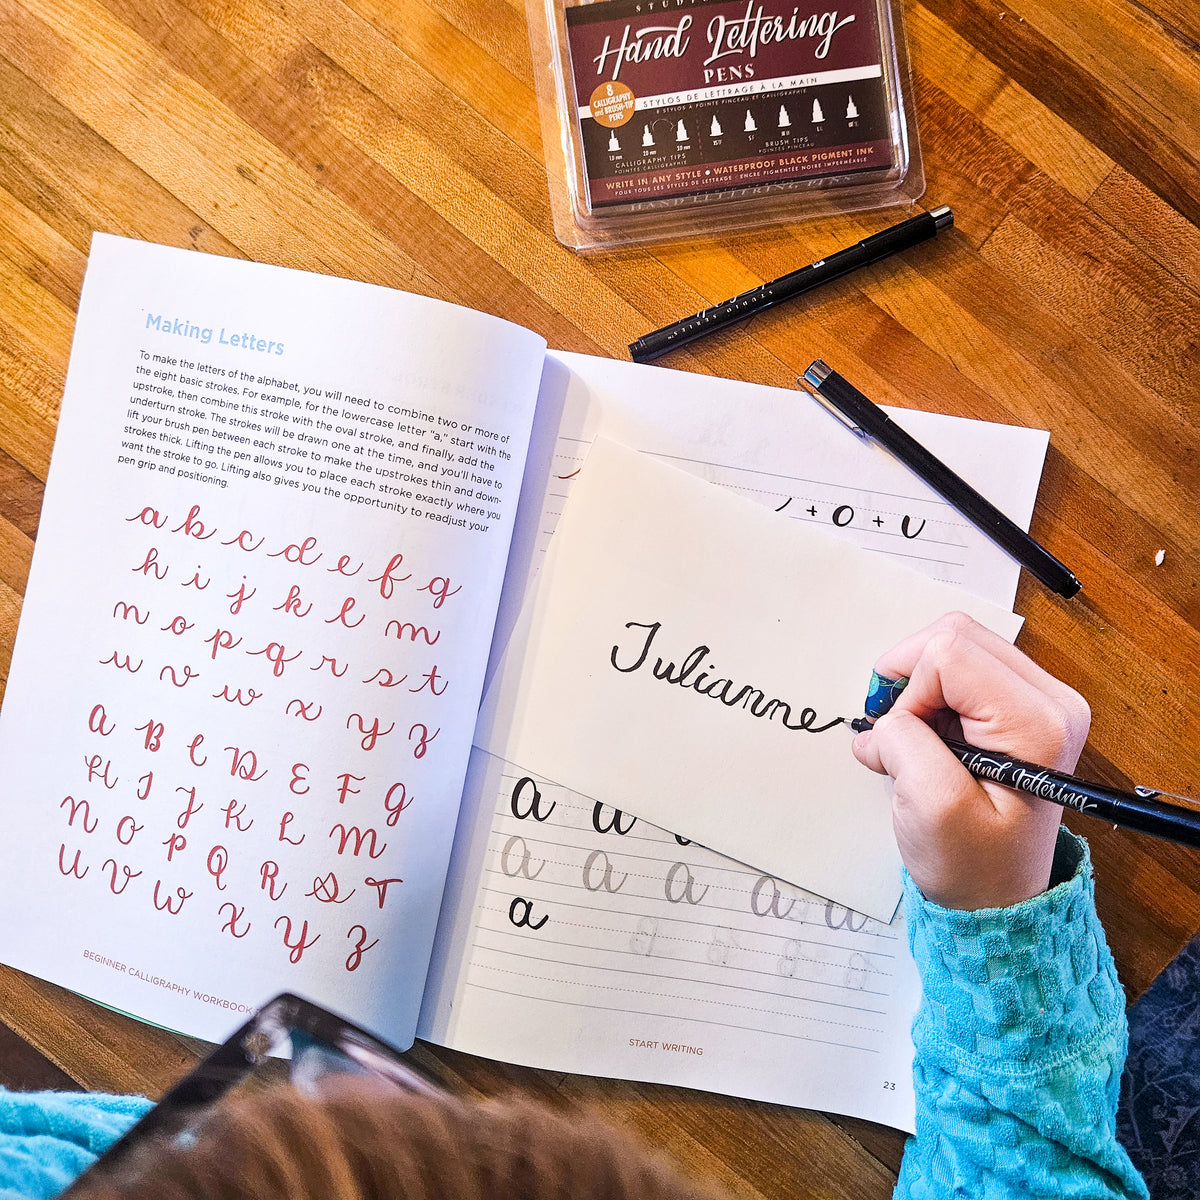 Hand Lettering
PENS
8
CALLIGRAPHY
AND BRUSH-TIP
PENS
STYLOS DE LETTRAGE À LA MAIN
8 STYLOS À POINTE PINCEAU ET CALLIGRAPHIE
1.0 mm 2.0 mm 3.0 mm
CALLIGRAPHY TIPS
POINTES CALLIGRAPHIE
BRUSH TIPS
POINTES PINCEAU
WRITE IN ANY STYLE • WATERPROOF BLACK PIGMENT INK
POUR TOUS LES STYLES DE LETTRAGE • ENCRE PIGMENTÉE NOIRE IMPERMÉABLE
HAND LETTERING PENS
STUDIO SERIES
Making Letters
To make the letters of the alphabet, you will need to combine two or more of
the eight basic strokes. For example, for the lowercase letter "a," start with the
upstroke, then combine this stroke with the oval stroke, and finally, add the
underturn stroke. The strokes will be drawn one at the time, and you'll have to
lift your brush pen between each stroke to make the upstrokes thin and down-
strokes thick. Lifting the pen allows you to place each stroke exactly where you
want the stroke to go. Lifting also gives you the opportunity to readjust your
pen grip and positioning.
a b c d e f g
h i j k l m
n o p q r s t
u v w x y z
A B C D E F G
H I J K L M
N O P Q R S T
U V W X Y Z
BEGINNER CALLIGRAPHY WORKBOOK
+ O + U
Julianne
Hand Lettering
a a
a a a a a
a
START WRITING
23